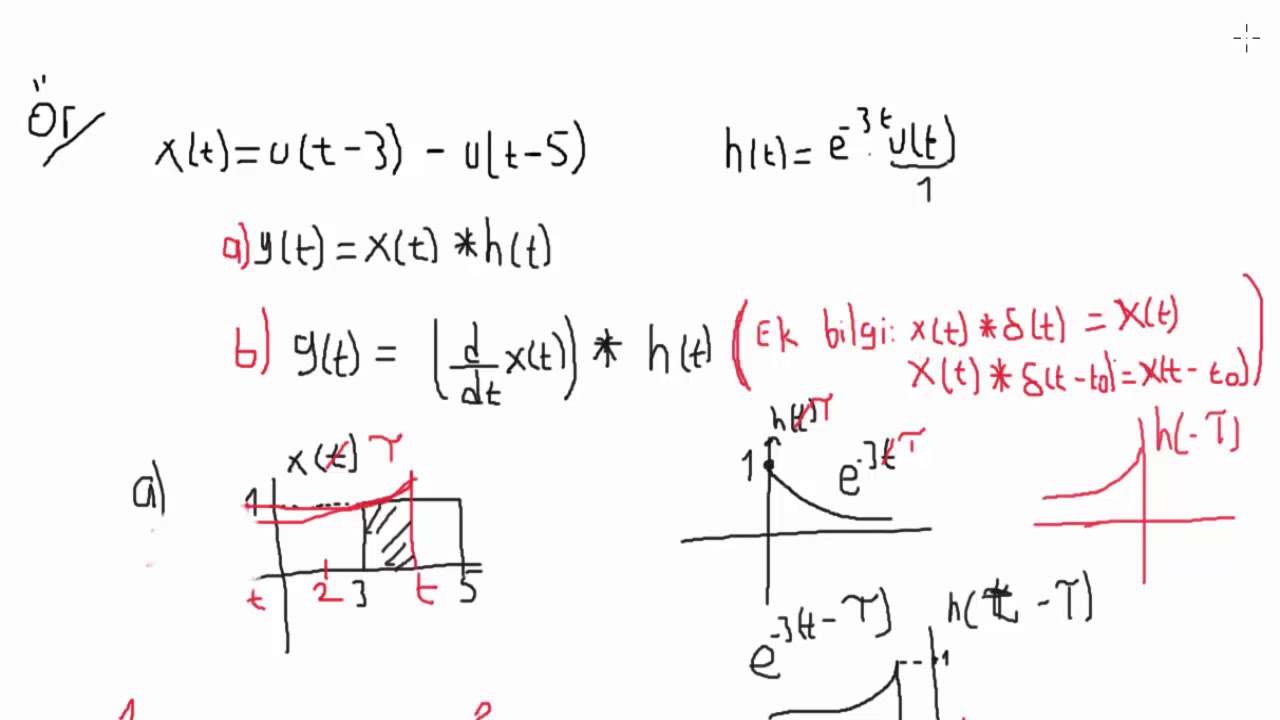 Ör/
x(t)=u(t-3) - u(t-5)
h(t)= e^-3t u(t)
1
a) y(t)=x(t) *h(t)
b) y(t)= (d/dt x(t)) * h(t) (Ek bilgi: x(t)*δ(t) = x(t)
x(t)*δ(t-t0)=x(t-t0))
a)
x(t) τ
1
t 2 3 t 5
h(t)τ
1
e^-3tτ
h(-τ)
e^-3(t-τ)
h(t-τ)
1